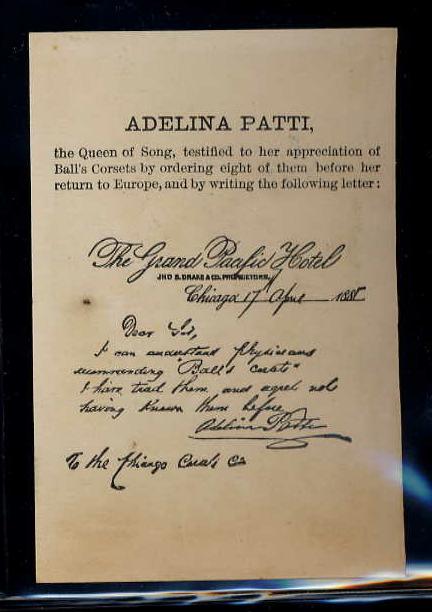 ADELINA PATTI,
the Queen of Song, testified to her appreciation of
Ball's Corsets by ordering eight of them before her
return to Europe, and by writing the following letter:
The Grand Pacific Hotel
JNO B. DRAKE & CO. PROPRIETORS.
Chicago 17 April 188
Dear Sir,
I can understand physicians
recommending Ball's corsets"
I have tried them and regret not
having known them before
Adelina Patti
To the Chicago Corsets Co